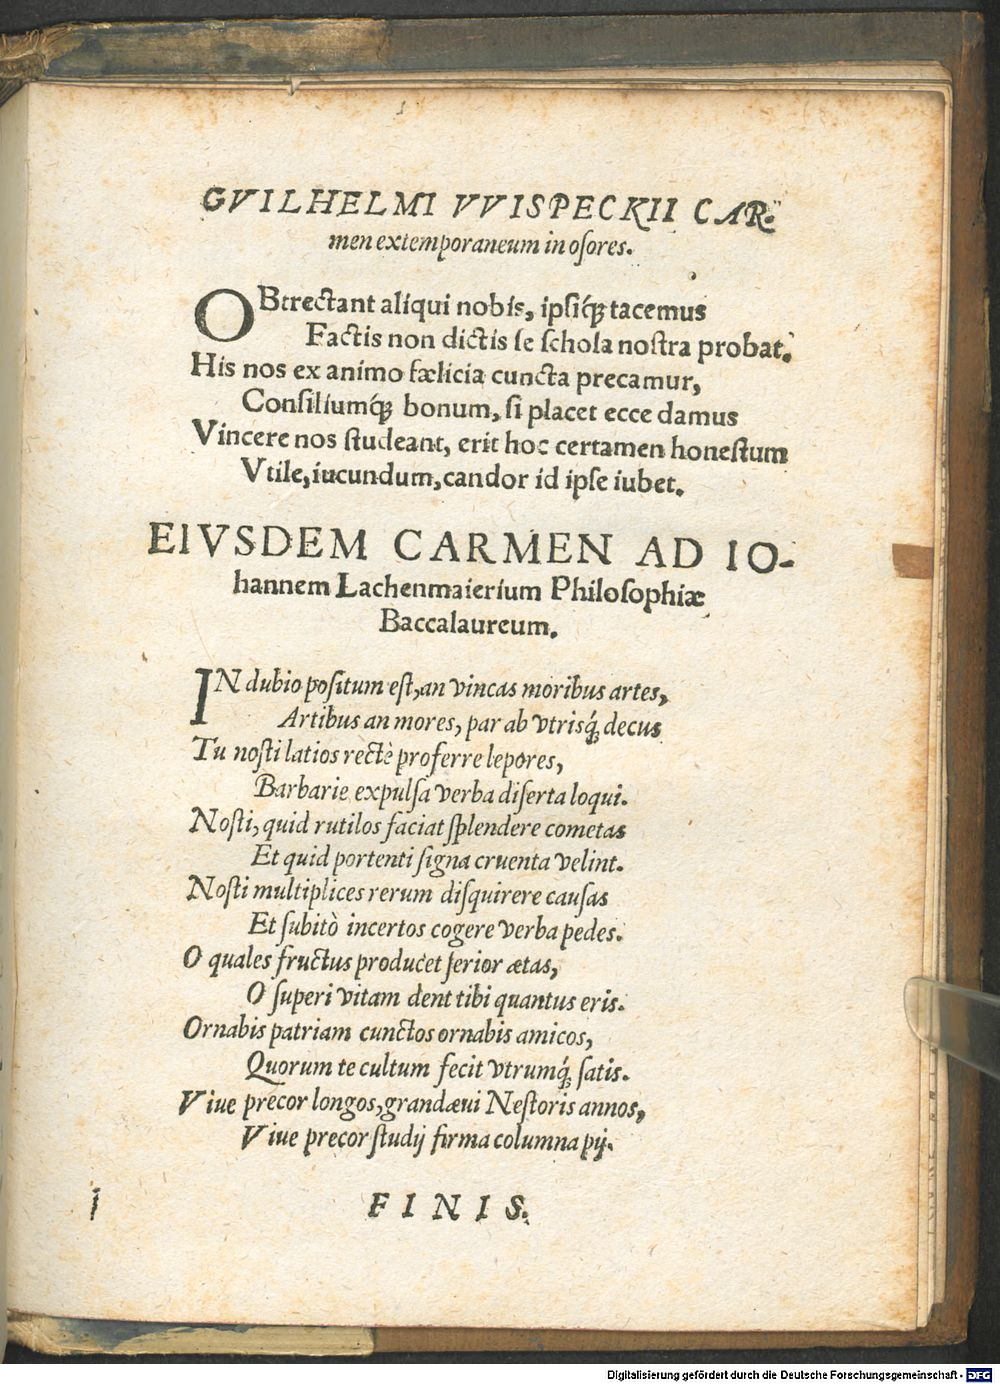 GVILHELMI VVISPECKII CAR-
men extemporaneum in osores.
OBtrectant aliqui nobis, ipsiq́; tacemus
Factis non dictis se schola nostra probat.
His nos ex animo fælicia cuncta precamur,
Consiliumq́; bonum, si placet ecce damus
Vincere nos studeant, erit hoc certamen honestum
Vtile, iucundum, candor id ipse iubet.
EIVSDEM CARMEN AD IO-
hannem Lachenmaierium Philosophiæ
Baccalaureum.
IN dubio positum est, an vincas moribus artes,
Artibus an mores, par ab vtrisq́; decus
Tu nosti latios rectè proferre lepores,
Barbarie expulsa verba diserta loqui.
Nosti, quid rutilos faciat splendere cometas
Et quid portenti signa cruenta velint.
Nosti multiplices rerum disquirere causas
Et subitò incertos cogere verba pedes.
O quales fructus producet serior ætas,
O superi vitam dent tibi quantus eris.
Ornabis patriam cunctos ornabis amicos,
Quorum te cultum fecit vtrumq́; satis.
Viue precor longos, grandæui Nestoris annos,
Viue precor studij firma columna pij.
FINIS.
Digitalisierung gefördert durch die Deutsche Forschungsgemeinschaft - DFG